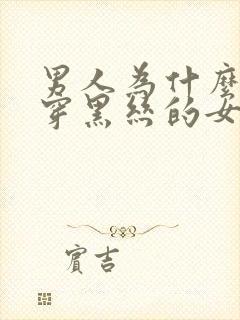 男人為什麼
穿黑絲的女
賓吉